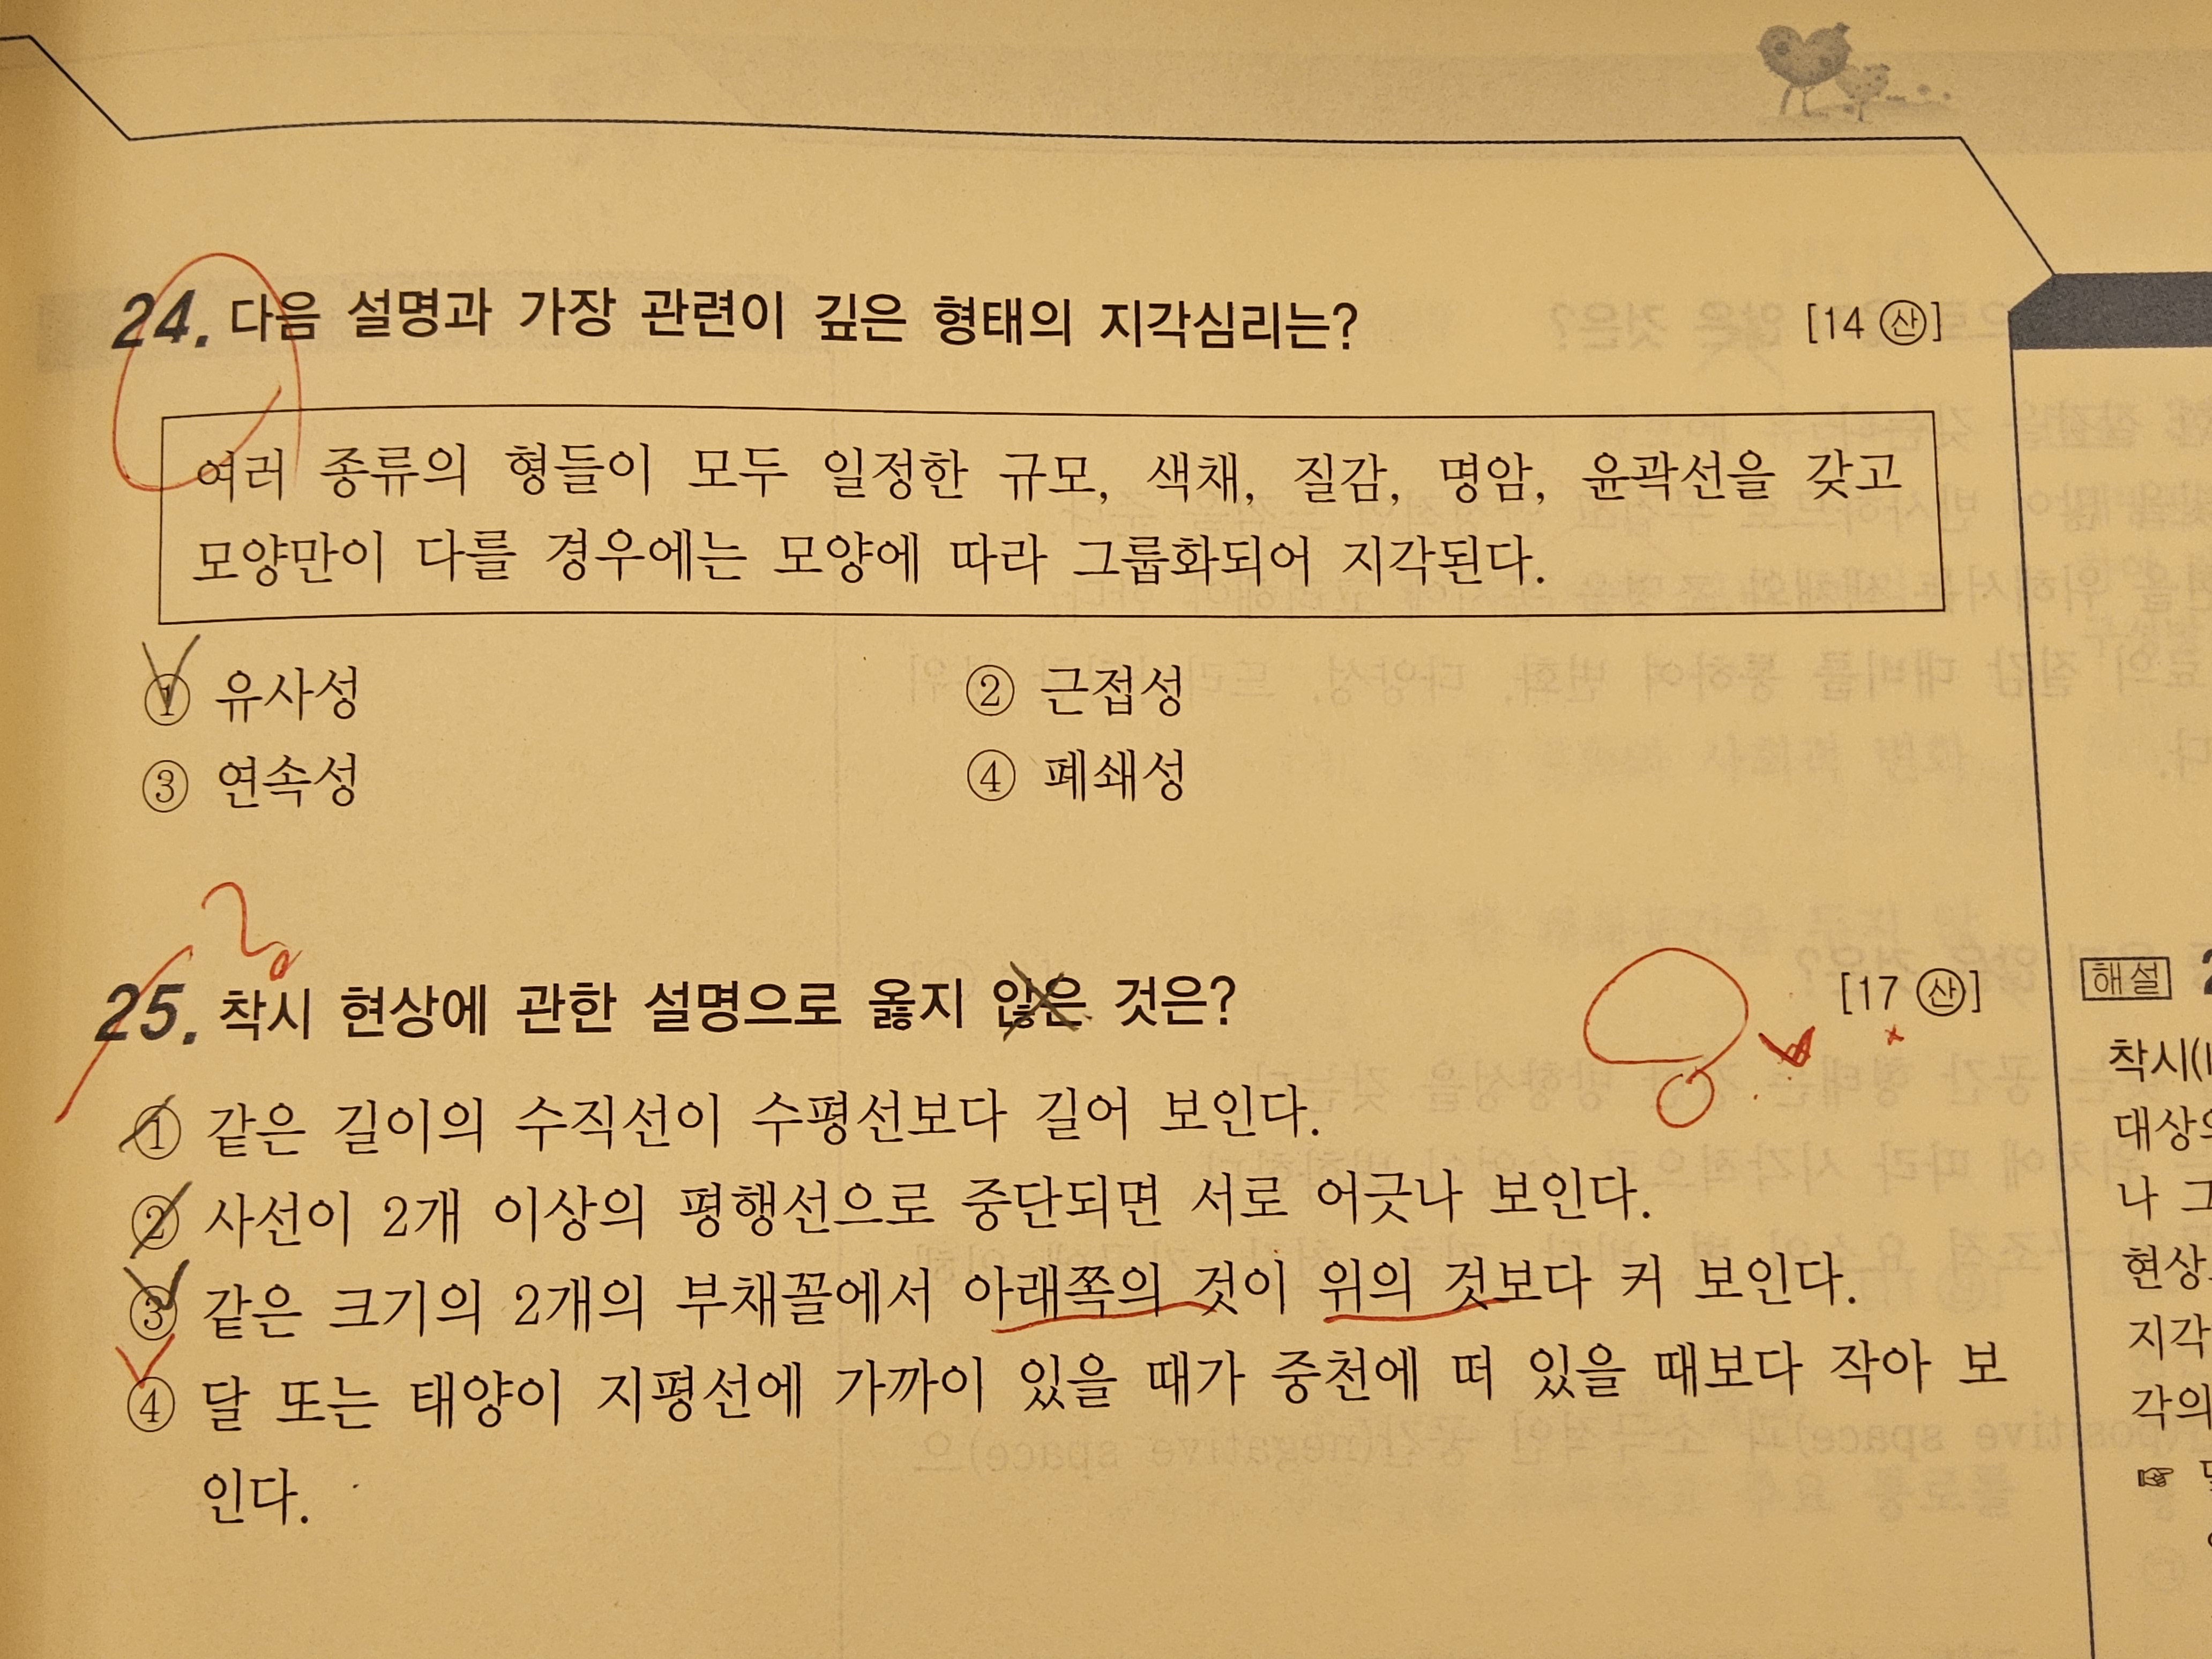 24. 다음 설명과 가장 관련이 깊은 형태의 지각심리는? [14 산]
여러 종류의 형들이 모두 일정한 규모, 색채, 질감, 명암, 윤곽선을 갖고
모양만이 다를 경우에는 모양에 따라 그룹화되어 지각된다.
① 유사성 ② 근접성
③ 연속성 ④ 폐쇄성
25. 착시 현상에 관한 설명으로 옳지 않은 것은? [17 산]
① 같은 길이의 수직선이 수평선보다 길어 보인다.
② 사선이 2개 이상의 평행선으로 중단되면 서로 어긋나 보인다.
③ 같은 크기의 2개의 부채꼴에서 아래쪽의 것이 위의 것보다 커 보인다.
④ 달 또는 태양이 지평선에 가까이 있을 때가 중천에 떠 있을 때보다 작아 보
인다.
해설
착시
대상의
나 그
현상
지각
각의